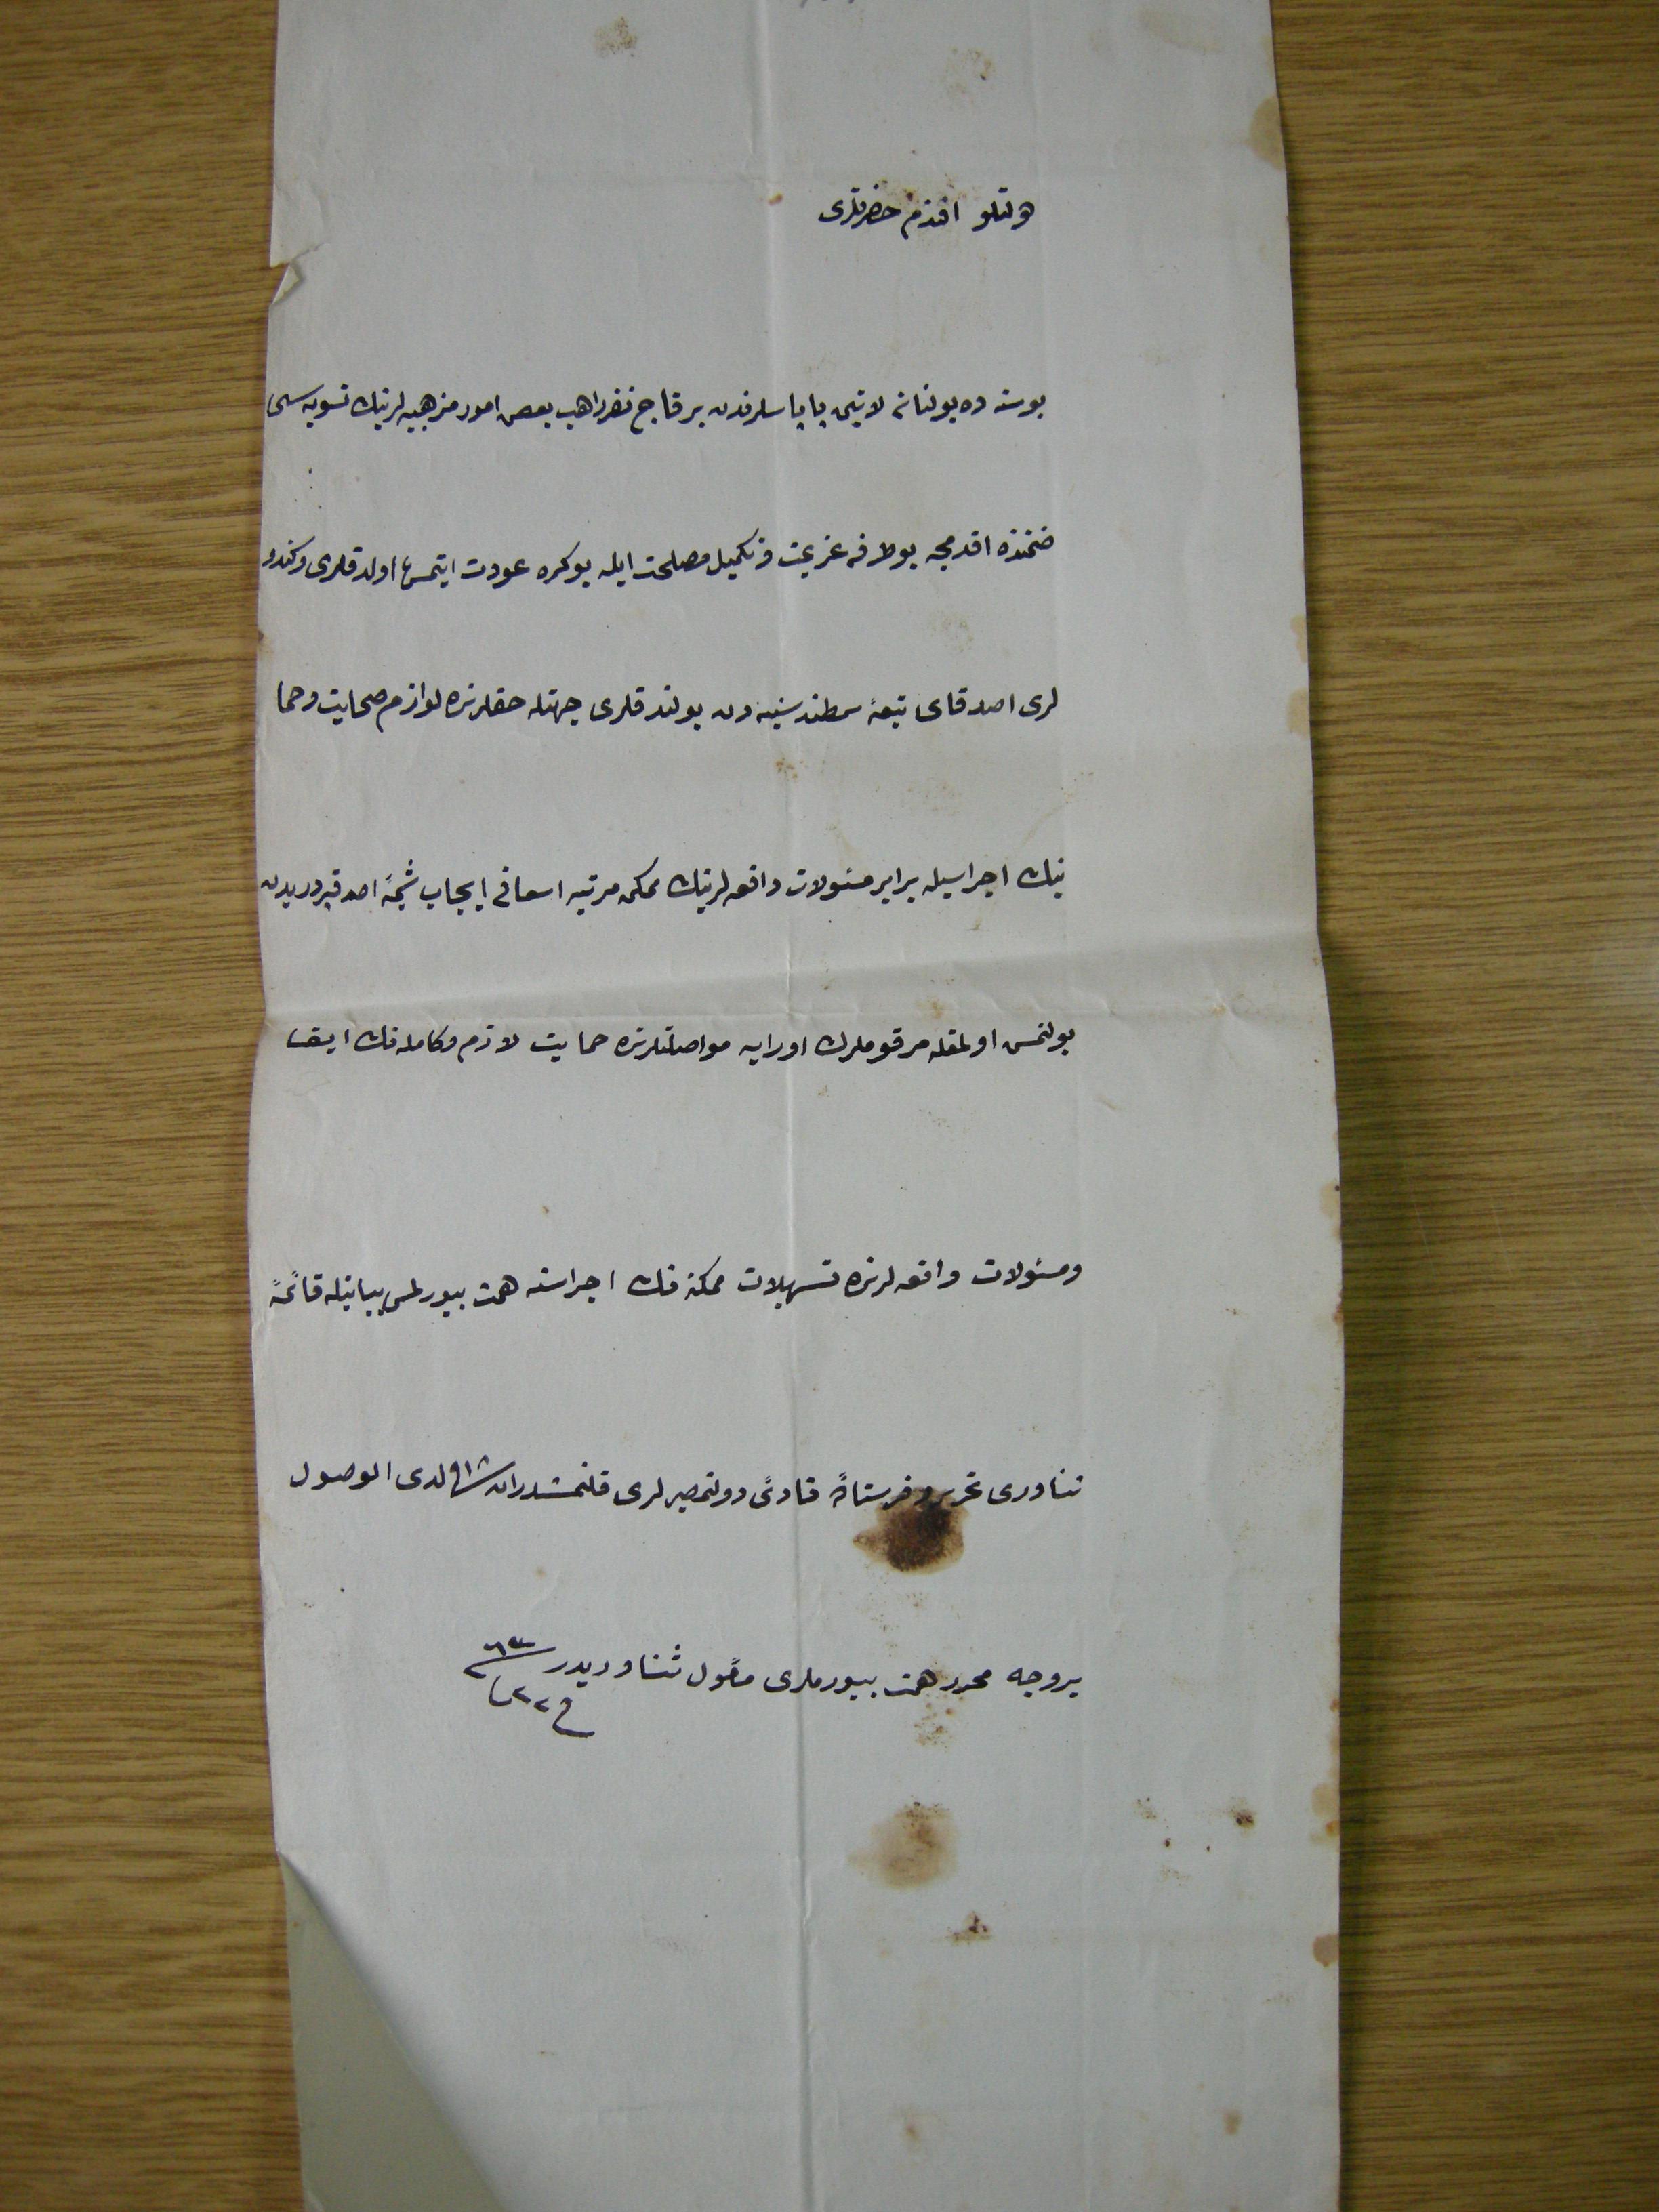 دولتلو افندم حضرتلری
بوسنه ده بولنان لاتین پاپاسلرندن بر قاچ نفر راهب بعض امور مذهبیه لرینك تسویه سی
ضمننده اقدمجه بو طرفه عزیمت و تکمیل مصلحت ایله بو کره عودت ایتمش اولدقلری و کندو
لری اصدقای تبعهٔ سلطنت سنیه دن بولندقلری جهتله حقلرنده لوازم صحابت و حما
ینك اجراسیله برابر مسئولات واقعه لرینك ممکن مرتبه اسعافی ایجاب شیمهٔ اصدقپروریدن
بولنمش اولمغله مرقوملرك اورایه مواصلتلرنده حمایت لازم و کامله نك ایفا
و مسئولات واقعه لرنده تسهیلات ممکنه نك اجراسنه همت بیورلمسی بیانیله قائمهٔ
ثناوری تحریر و فرستادهٔ نادئ دولتمصیرلری قلنمشدر ان شاء الله لدی الوصول
بر وجه محرر همت بیورملری مأمول ثناوریدر